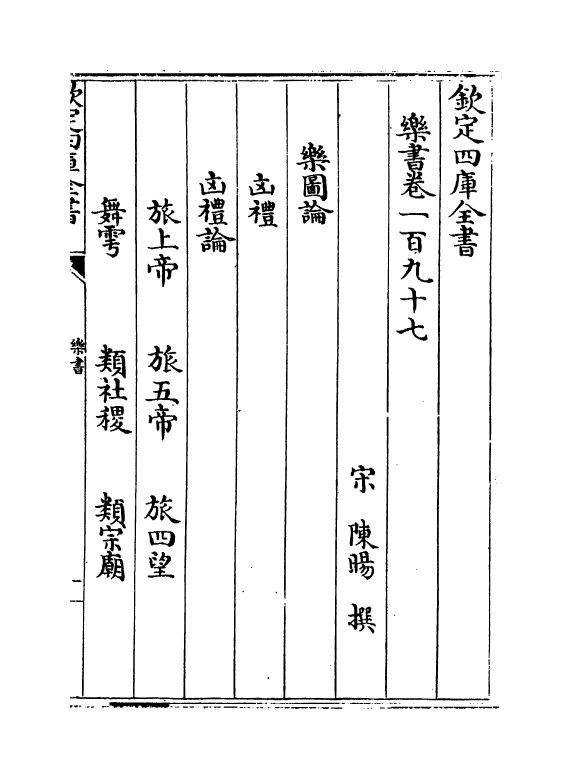 欽定四庫全書
樂書卷一百九十七
宋 陳暘 撰
樂圖論
凶禮
凶禮論
旅上帝 旅五帝 旅四望
舞雩 類社稷 類宗廟
欽定四庫全書
樂書